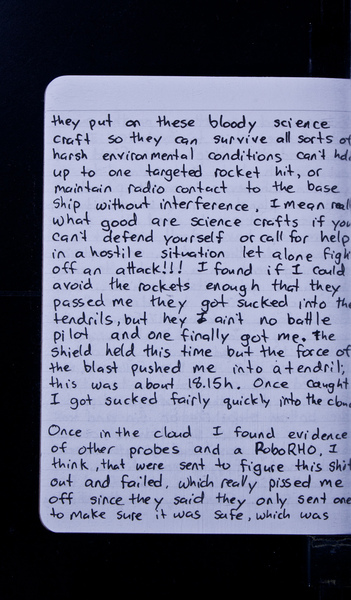 they put on these bloody science
craft so they can survive all sorts of
harsh environmental conditions can't hold
up to one targeted rocket hit, or
maintain radio contact to the base
ship without interference. I mean really
what good are science crafts if you
can't defend yourself or call for help
in a hostile situation let alone fight
off an attack!!! I found if I could
avoid the rockets enough that they
passed me they got sucked into the
tendrils, but hey I ain't no battle
pilot and one finally got me. the
shield held this time but the force of
the blast pushed me into a tendril;
this was about 18.15h. Once caught
I got sucked fairly quickly into the cloud
Once in the cloud I found evidence
of other probes and a RoboRHO, I
think, that were sent to figure this shit
out and failed, which really pissed me
off since they said they only sent one
to make sure it was safe, which was